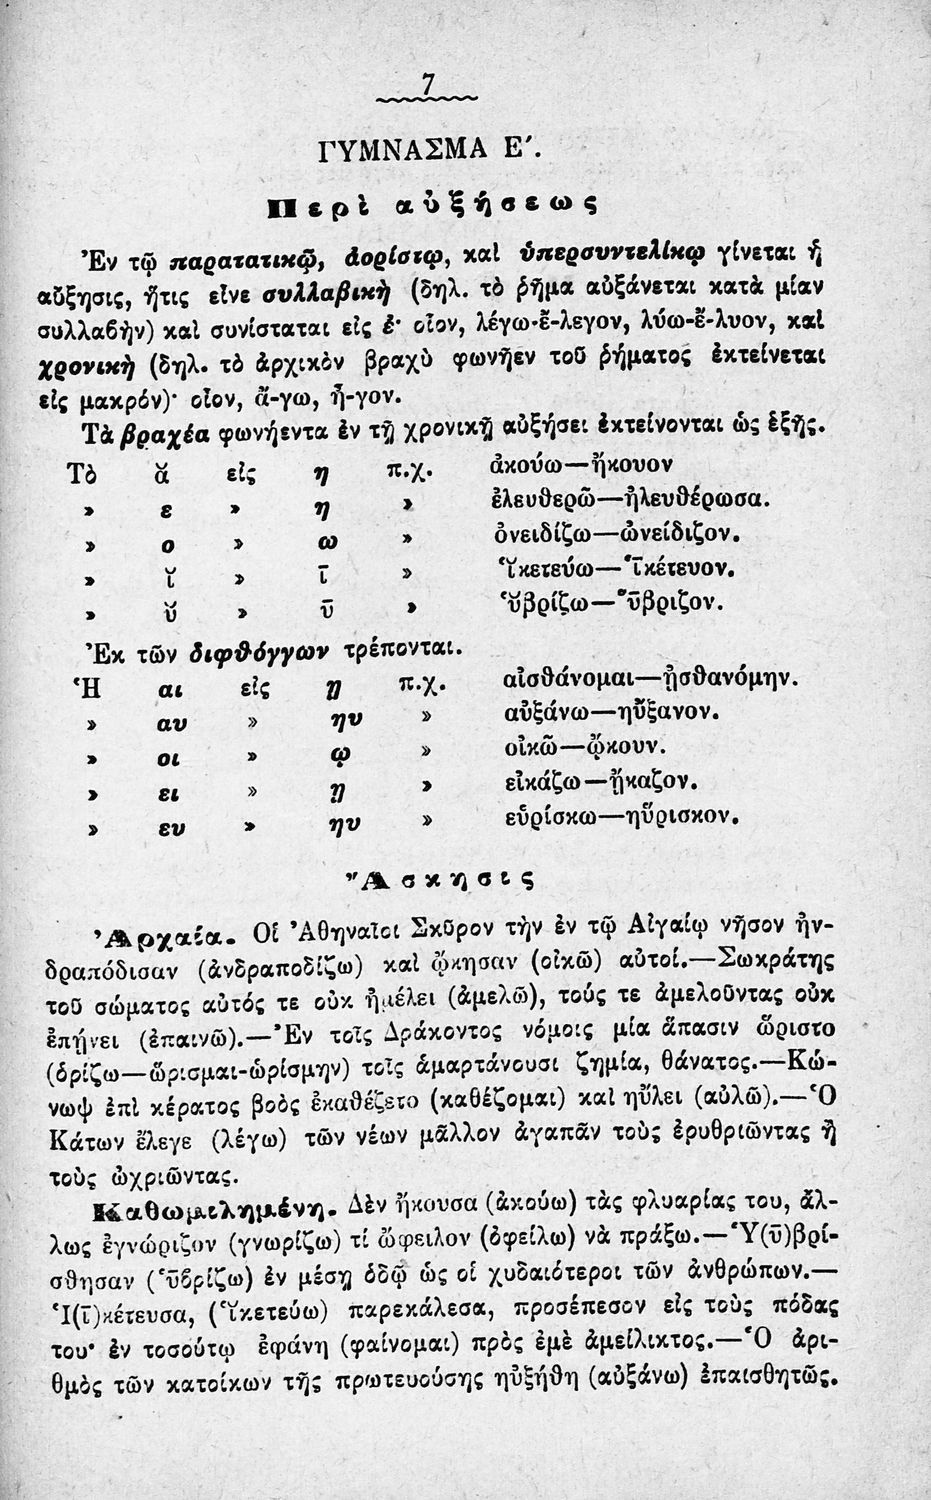 7
ΓΥΜΝΑΣΜΑ Ε΄.
Περὶ αὐξήσεως
Ἐν τῷ παρατατικῷ, ἀορίστῳ, καὶ ὑπερσυντελίκῳ γίνεται ἡ
αὔξησις, ἥτις εἶνε συλλαβικὴ (δηλ. τὸ ῥῆμα αὐξάνεται κατὰ μίαν
συλλαβὴν) καὶ συνίσταται εἰς ἐ· οἷον, λέγω-ἔ-λεγον, λύω-ἔ-λυον, καὶ
χρονικὴ (δηλ. τὸ ἀρχικὸν βραχὺ φωνῆεν τοῦ ῥήματος ἐκτείνεται
εἰς μακρόν)· οἷον, ἄ-γω, ἦ-γον.
Τὰ βραχέα φωνήεντα ἐν τῇ χρονικῇ αὐξήσει ἐκτείνονται ὡς ἑξῆς.
Τὸ ᾰ εἰς η π.χ. ἀκούω—ἤκουον
» ε » η » ἐλευθερῶ—ἠλευθέρωσα.
» ο » ω » ὀνειδίζω—ὠνείδιζον.
» ῐ » ῑ » Ἱ̆κετεύω—Ἱ̄κέτευον.
» ῠ » ῡ » ὑ̆βρίζω—ὕ̄βριζον.
Ἐκ τῶν διφθόγγων τρέπονται.
Ἡ αι εἰς ῃ π.χ. αἰσθάνομαι—ᾐσθανόμην.
» αυ » ηυ » αὐξάνω—ηὔξανον.
» οι » ῳ » οἰκῶ—ᾤκουν.
» ει » ῃ » εἰκάζω—ᾔκαζον.
» ευ » ηυ » εὑρίσκω—ηὕρισκον.
Ἄσκησις
Ἀρχαία. Οἱ Ἀθηναῖοι Σκῦρον τὴν ἐν τῷ Αἰγαίῳ νῆσον ἠν-
δραπόδισαν (ἀνδραποδίζω) καὶ ᾤκησαν (οἰκῶ) αὐτοί.—Σωκράτης
τοῦ σώματος αὐτός τε οὐκ ἠμέλει (ἀμελῶ), τούς τε ἀμελοῦντας οὐκ
ἐπῄνει (ἐπαινῶ).—Ἐν τοῖς Δράκοντος νόμοις μία ἅπασιν ὥριστο
(ὁρίζω—ὥρισμαι-ὡρίσμην) τοῖς ἁμαρτάνουσι ζημία, θάνατος.—Κώ-
νωψ ἐπὶ κέρατος βοὸς ἐκαθέζετο (καθέζομαι) καὶ ηὔλει (αὐλῶ).—Ὁ
Κάτων ἔλεγε (λέγω) τῶν νέων μᾶλλον ἀγαπᾶν τοὺς ἐρυθριῶντας ἢ
τοὺς ὠχριῶντας.
Καθωμιλημένη. Δὲν ἤκουσα (ἀκούω) τὰς φλυαρίας του, ἄλ-
λως ἐγνώριζον (γνωρίζω) τί ὤφειλον (ὀφείλω) νὰ πράξω.—Ὑ(ῡ)βρί-
σθησαν (ὑ̄βρίζω) ἐν μέσῃ ὁδῷ ὡς οἱ χυδαιότεροι τῶν ἀνθρώπων.—
Ἱ(ῑ)κέτευσα, (ἱ̆κετεύω) παρεκάλεσα, προσέπεσον εἰς τοὺς πόδας
του· ἐν τοσούτῳ ἐφάνη (φαίνομαι) πρὸς ἐμὲ ἀμείλικτος.—Ὁ ἀρι-
θμὸς τῶν κατοίκων τῆς πρωτευούσης ηὐξήθη (αὐξάνω) ἐπαισθητῶς.